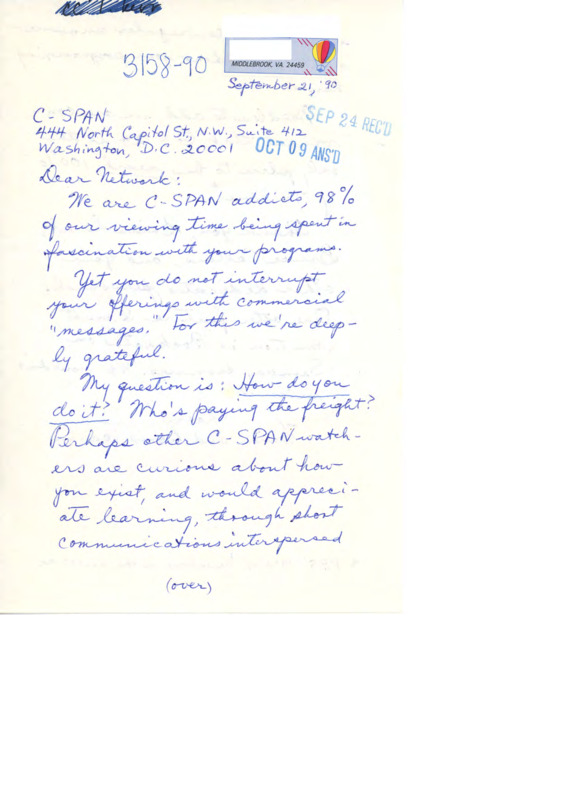 3158-90
MIDDLEBROOK, VA 24459
September 21, '90
C-SPAN
444 North Capitol St., N.W., Suite 412
Washington, D.C. 20001
SEP 24 REC'D
OCT 09 ANS'D
Dear Network:
We are C-SPAN addicts, 98%
of our viewing time being spent in
fascination with your programs.
Yet you do not interrupt
your offerings with commercial
"messages." For this we're deep-
ly grateful.
My question is: How do you
do it? Who's paying the freight?
Perhaps other C-SPAN watch-
ers are curious about how
you exist, and would appreci-
ate learning, through short
communications interspersed
(over)